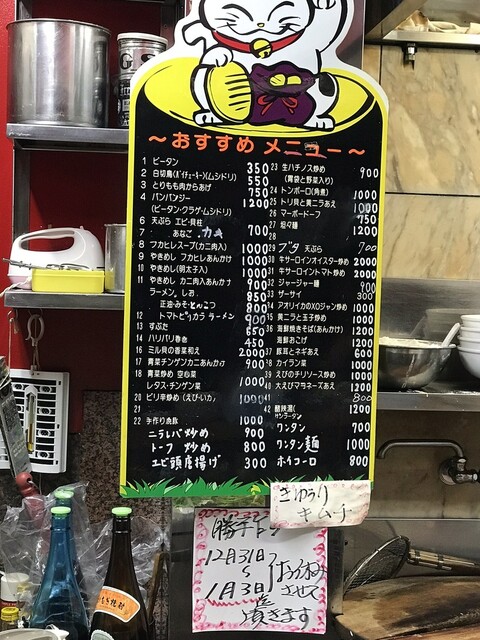 ～おすすめ メニュー～
1 ピータン 350
2 白切鳥(パイチェーキー)(ムシドリ) 550
3 とりもも肉からあげ 750
4 バンバンジー 1200
(ピータン・クラゲ・ムシドリ)
6 天ぷら エビ・貝柱
7 あなご カキ 700
8 フカヒレスープ(カニ肉入) 1000
9 やきめし フカヒレあんかけ 1000
10 やきめし(明太子入) 1000
11 やきめし カニ肉入あんかけ 900
ラーメン しお 850
正油・みそ・とんこつ 800
12 トマトピリカラ ラーメン 900
13 すぶた 650
14 ハリハリ巻き 450
16 ミル貝の香菜和え 2000
17 青菜チンゲンカニあんかけ 900
18 青菜炒め 空芯菜
レタス・チンゲン菜 1000
20 ピリ辛炒め(えびいか) 1000
21
22 手作り焼豚 1000
ニラレバ炒め 900
トーフ 炒め 800
エビ頭唐揚げ 300
23 生ハチノス炒め 900
(胃袋と野菜入り)
24 トンポーロ(角煮) 1000
25 トリ貝と黄ニラあえ 1000
26 マーボードーフ 750
27 坦々麺 1200
28
29 ブタ 天ぷら 700
30 牛サーロインオイスター炒め 2000
31 牛サーロイントマト炒め 2000
32 ジャージャー麺 900
33 ザーサイ 300
34 アオリイカのXOジャン炒め 1000
35 黄ニラと玉子炒め 1000
36 海鮮焼きそば(あんかけ) 1200
海鮮おこげ 1200
37 豚耳とネギあえ 600
38 カイラン菜 1000
39 えびのチリソース炒め 1000
40 大えびマヨネーズあえ 1200
41 800
42 酸辣湯( 1200
サンラータン
ワンタン 700
ワンタン麺 1000
ホイコーロ 800
きゅうり
キムチ
勝手乍ら
12月31日
～
1月3日迄
お休み
させて
頂きます